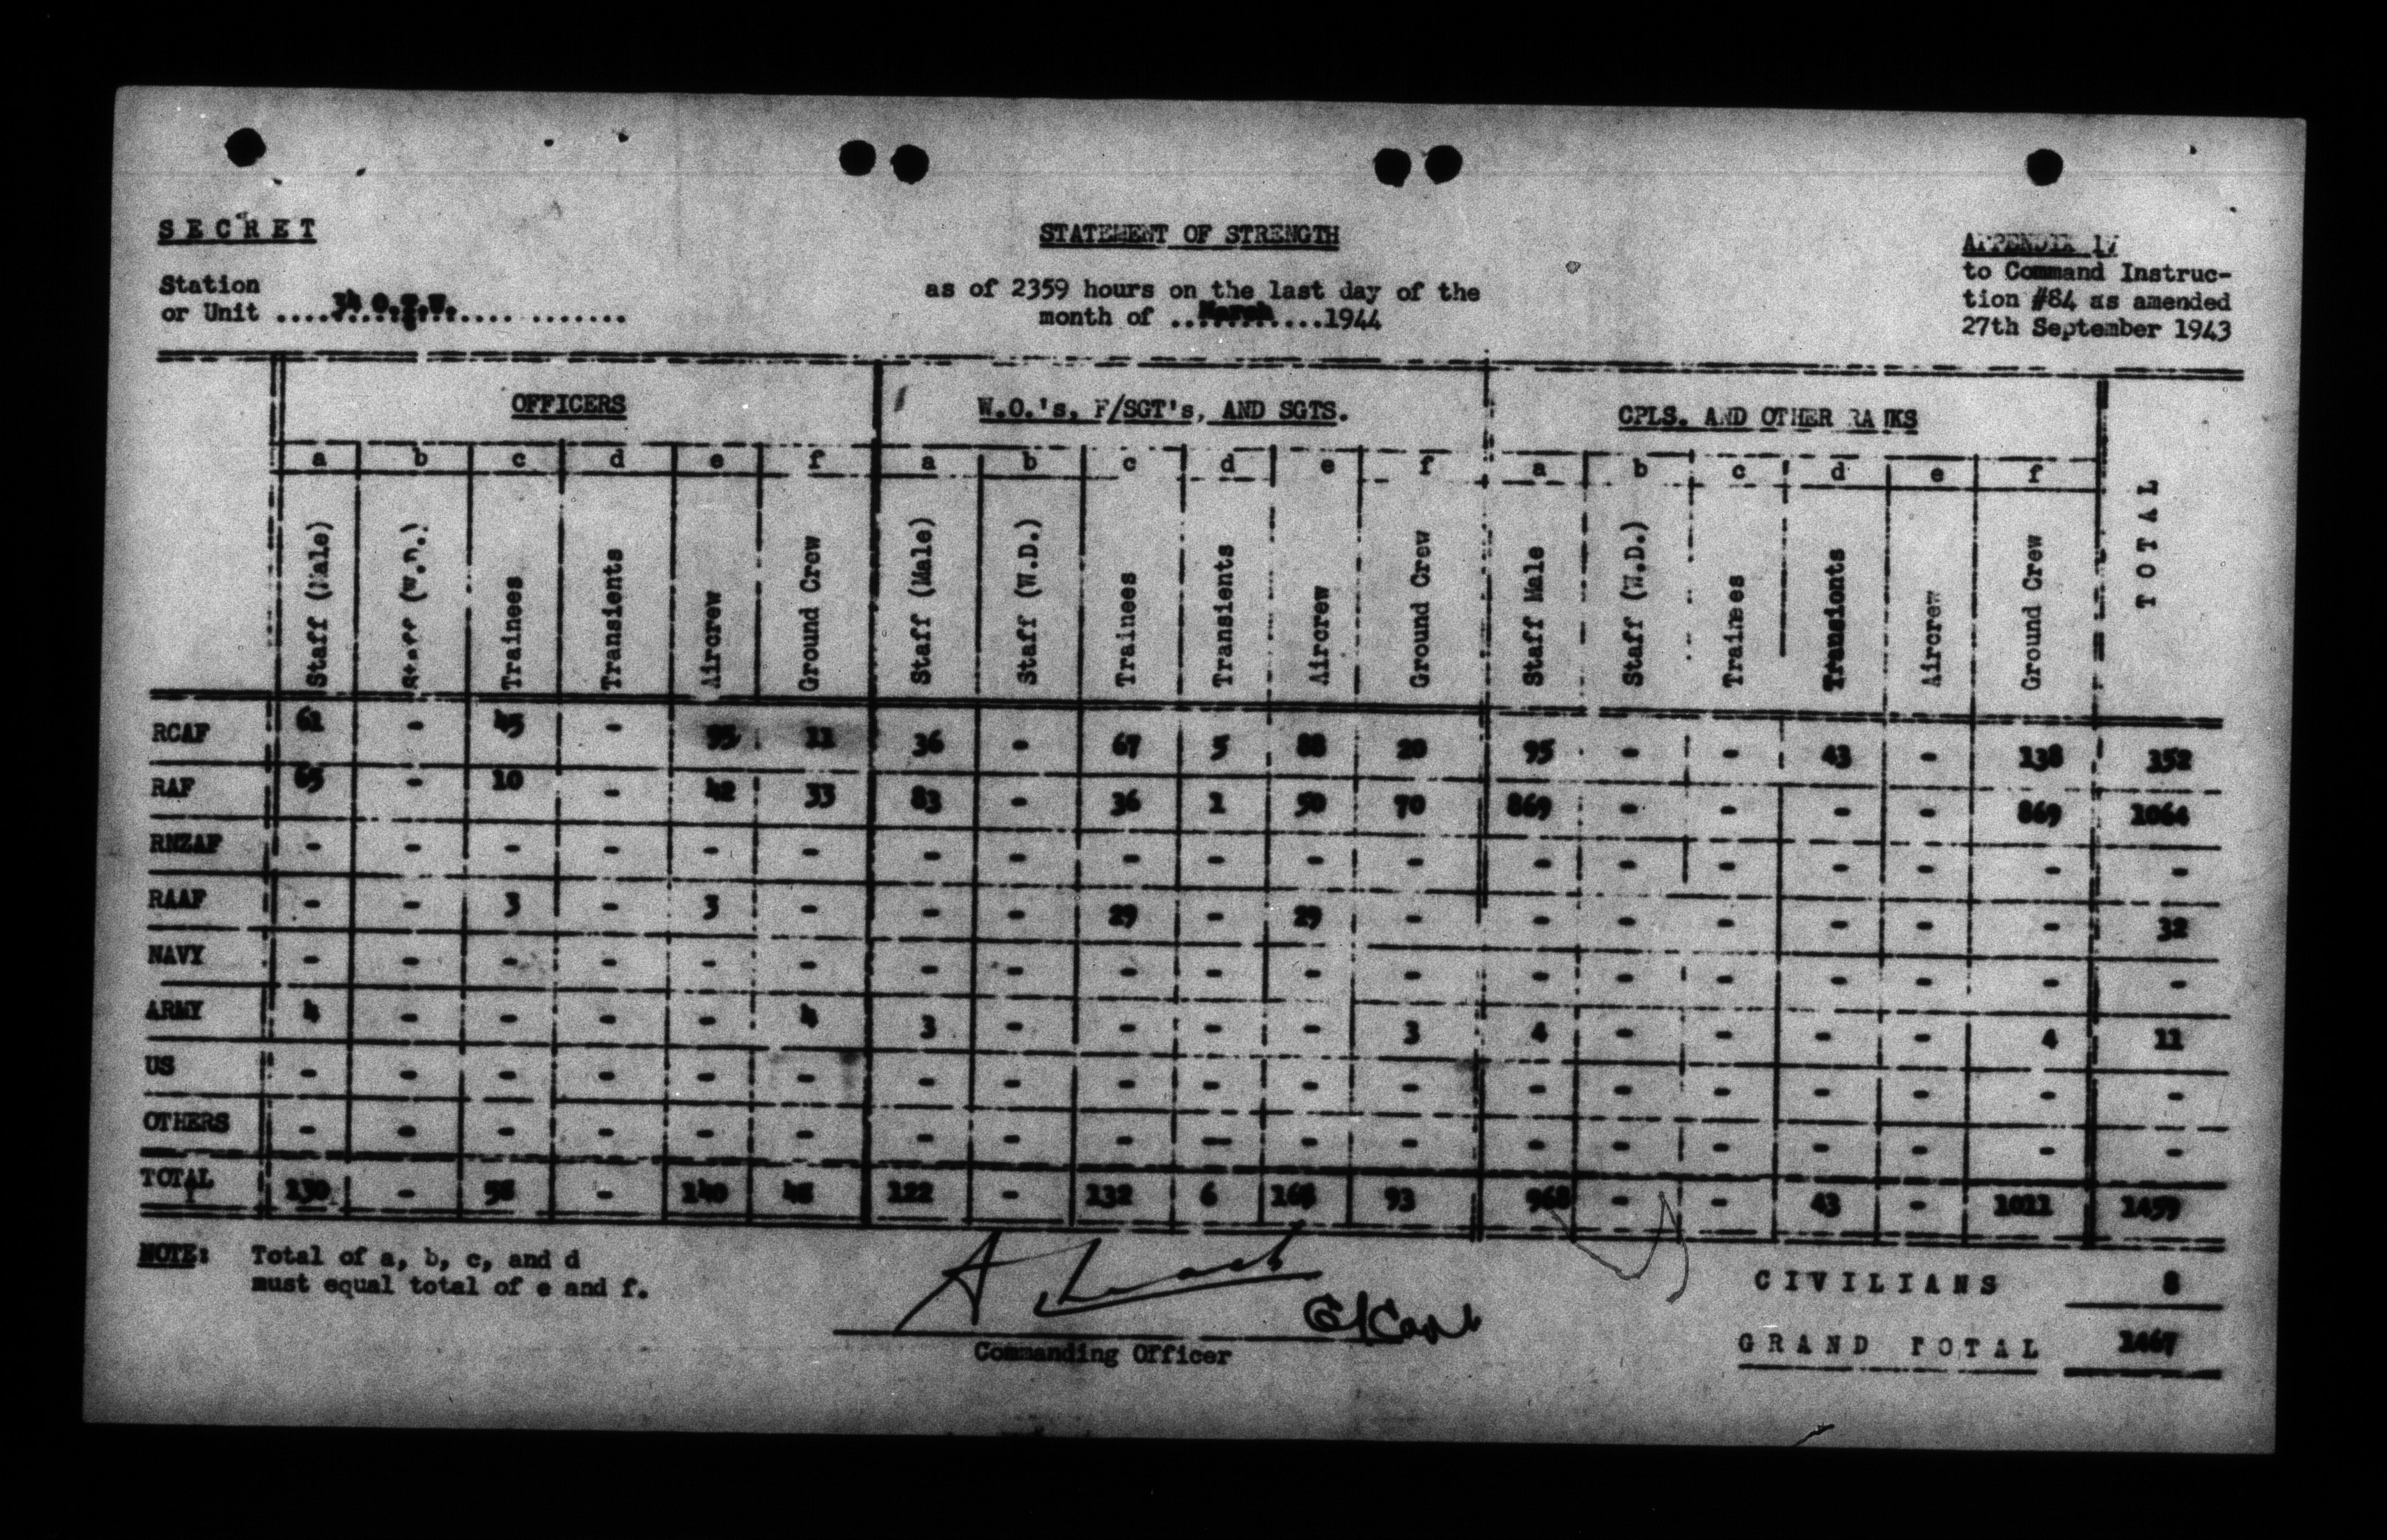 SECRET
STATEMENT OF STRENGTH
APPENDIX IV
to Command Instruc-
tion #84 as amended
27th September 1943
Station
or Unit ....34 O.T.U.....
as of 2359 hours on the last day of the
month of ..March....1944
OFFICERS W.O.'s, F/SGT's, AND SGTS. CPLS. AND OTHER RANKS TOTAL
a b c d e f a b c d e f a b c d e f
Staff (Male) Staff (W.D.) Trainees Transients Aircrew Ground Crew Staff (Male) Staff (W.D.) Trainees Transients Aircrew Ground Crew Staff Male Staff (W.D.) Trainees Transients Aircrew Ground Crew
RCAF 61 - 45 - 95 11 36 - 67 5 88 20 95 - - 43 - 138 352
RAF 65 - 10 - 42 33 83 - 36 1 50 70 869 - - - - 869 1064
RNZAF - - - - - - - - - - - - - - - - - - -
RAAF - - 3 - 3 - - - 29 - 29 - - - - - - - 32
NAVY - - - - - - - - - - - - - - - - - - -
ARMY 4 - - - - 4 3 - - - - 3 4 - - - - 4 11
US - - - - - - - - - - - - - - - - - - -
OTHERS - - - - - - - - - - - - - - - - - - -
TOTAL 130 - 58 - 140 48 122 - 132 6 168 93 968 - - 43 - 1011 1459
NOTE: Total of a, b, c, and d
must equal total of e and f.
G/Capt
Commanding Officer
CIVILIANS 8
GRAND TOTAL 1467